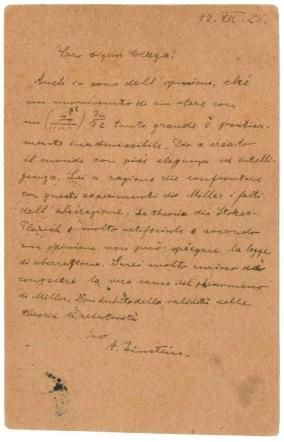 12. XII. 25.
Caro signor Collega!
Anch'io sono dell'opinione, che
un movimento di un etere con
un tanto grande è pratica-
mente inadmissibile. Dio a creato
il mondo con più eleganza ed intelli-
genza. Lei a ragione che confrontare
con questi experimenti di Miller i fatti
dell'aberrazione. La theoria di Stokes-
Planck è molto artificiale e secondo
mia opinione non può spiegare la legge
di aberrazione. Sarei molto curioso di
conoscere la vera causa del phenomeno
di Miller. Non dubito della validità della
theoria di relatività
Suo
A. Einstein.